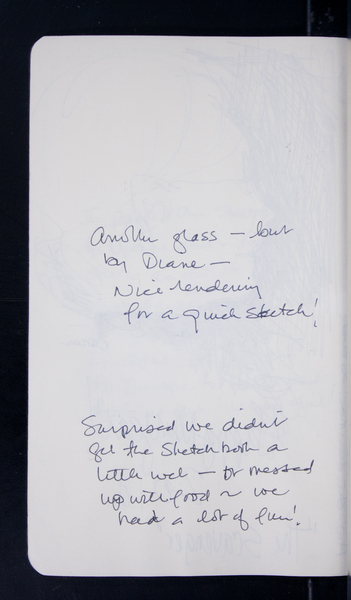 Another glass — but
by Diane —
Nice rendering
for a quick sketch!
Surprised we didn't
get the Sketchbook a
little wet — or messed
up with food ~ we
had a lot of fun!